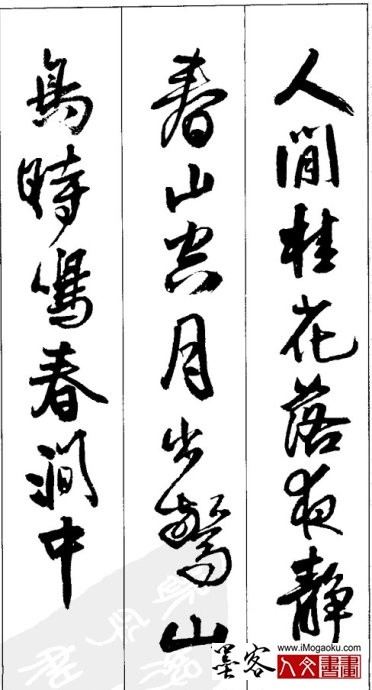 人閒桂花落夜靜
春山空月出驚山
鳥時鳴春澗中
墨客
www.iMogaoku.com
人文書畫